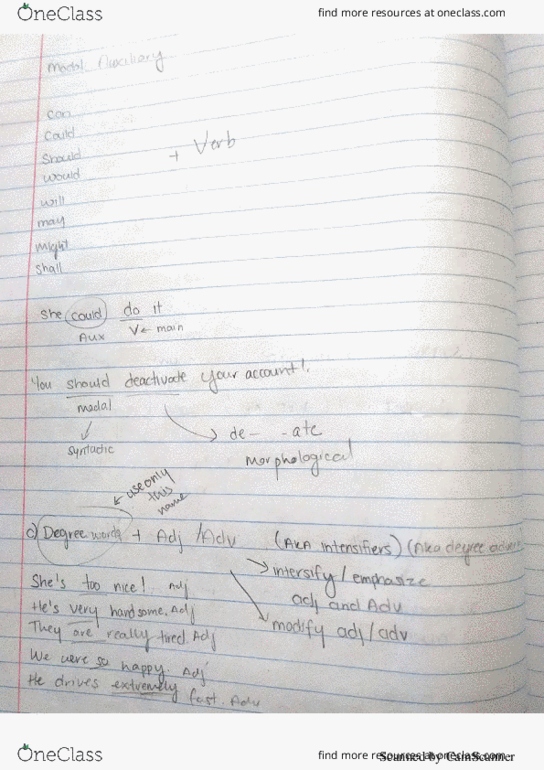 OneClass
find more resources at oneclass.com
modal Auxiliary
can
Could
Should
would
+ Verb
will
may
might
shall
She could do it
Aux V← main
You should deactivate your account!
modal
↓
syntactic
→ de- -ate
morphological
← use only
this
name
c) Degree words + Adj /Adv (AKA intensifiers) (Aka degree
→ intersify/emphasize
adj and Adv
→ modify adj/adv
She's too nice! Adj
He's very handsome. Adj
They are really tired. Adj
We were so happy. Adj
He drives extremely fast. Adv
OneClass
find more resources at oneclass.com
Scanned by CamScanner